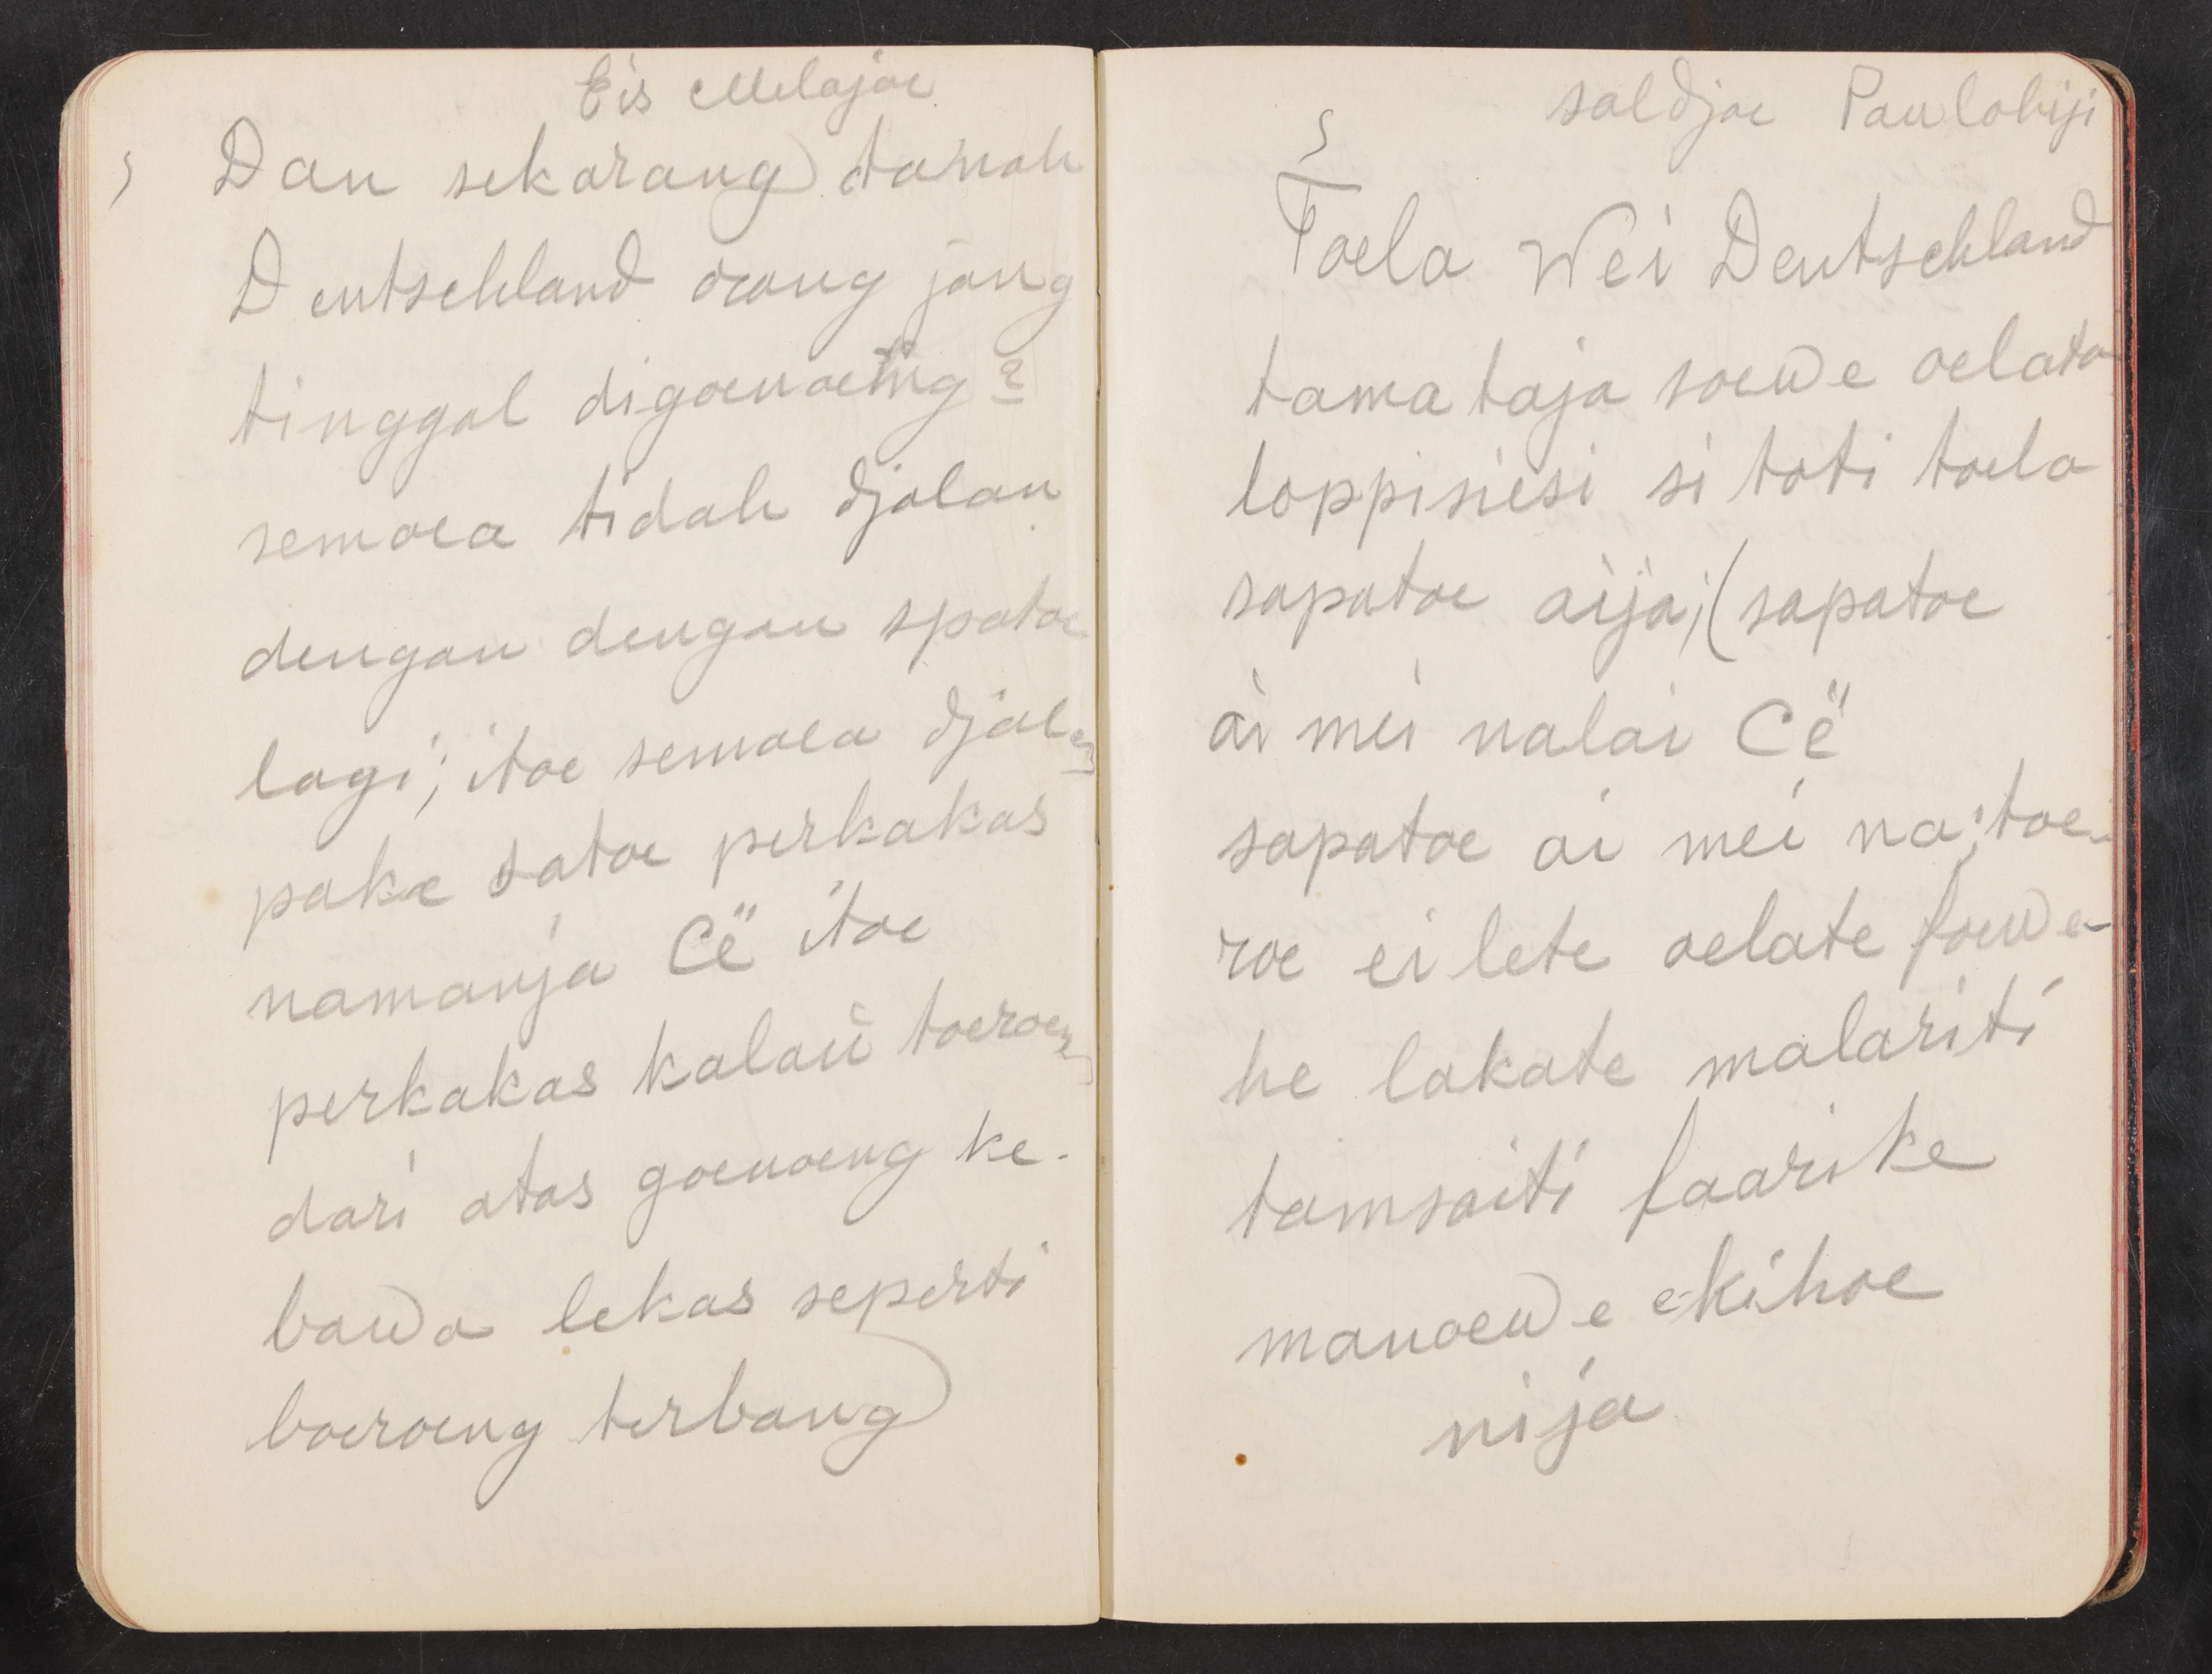 Eis Melajoe
Dan sekarang tanah
Deutschland orang jang
tinggal digoenoeng 2
semoea tidah djalan
dengan dengan spatoe
lagi; itoe semoea djalan
pake satoe perkakas
namanja Cë itoe
perkakas kalau toeroen
dari atas goenoeng ke-
bawa lekas seperti
boeroeng terbang
saldjoe Paulohiji
Toela Wei Deutschland
tama taja soewe oelato
loppisiesi si toti toela
sapatoe aija; (sapatoe
ai mei nalai Cë
sapatoe ai mei na; toe-
roe ei lete oelate fowe-
he lakate malariti
tamsaiti faarike
manoewe ekihoe
nija